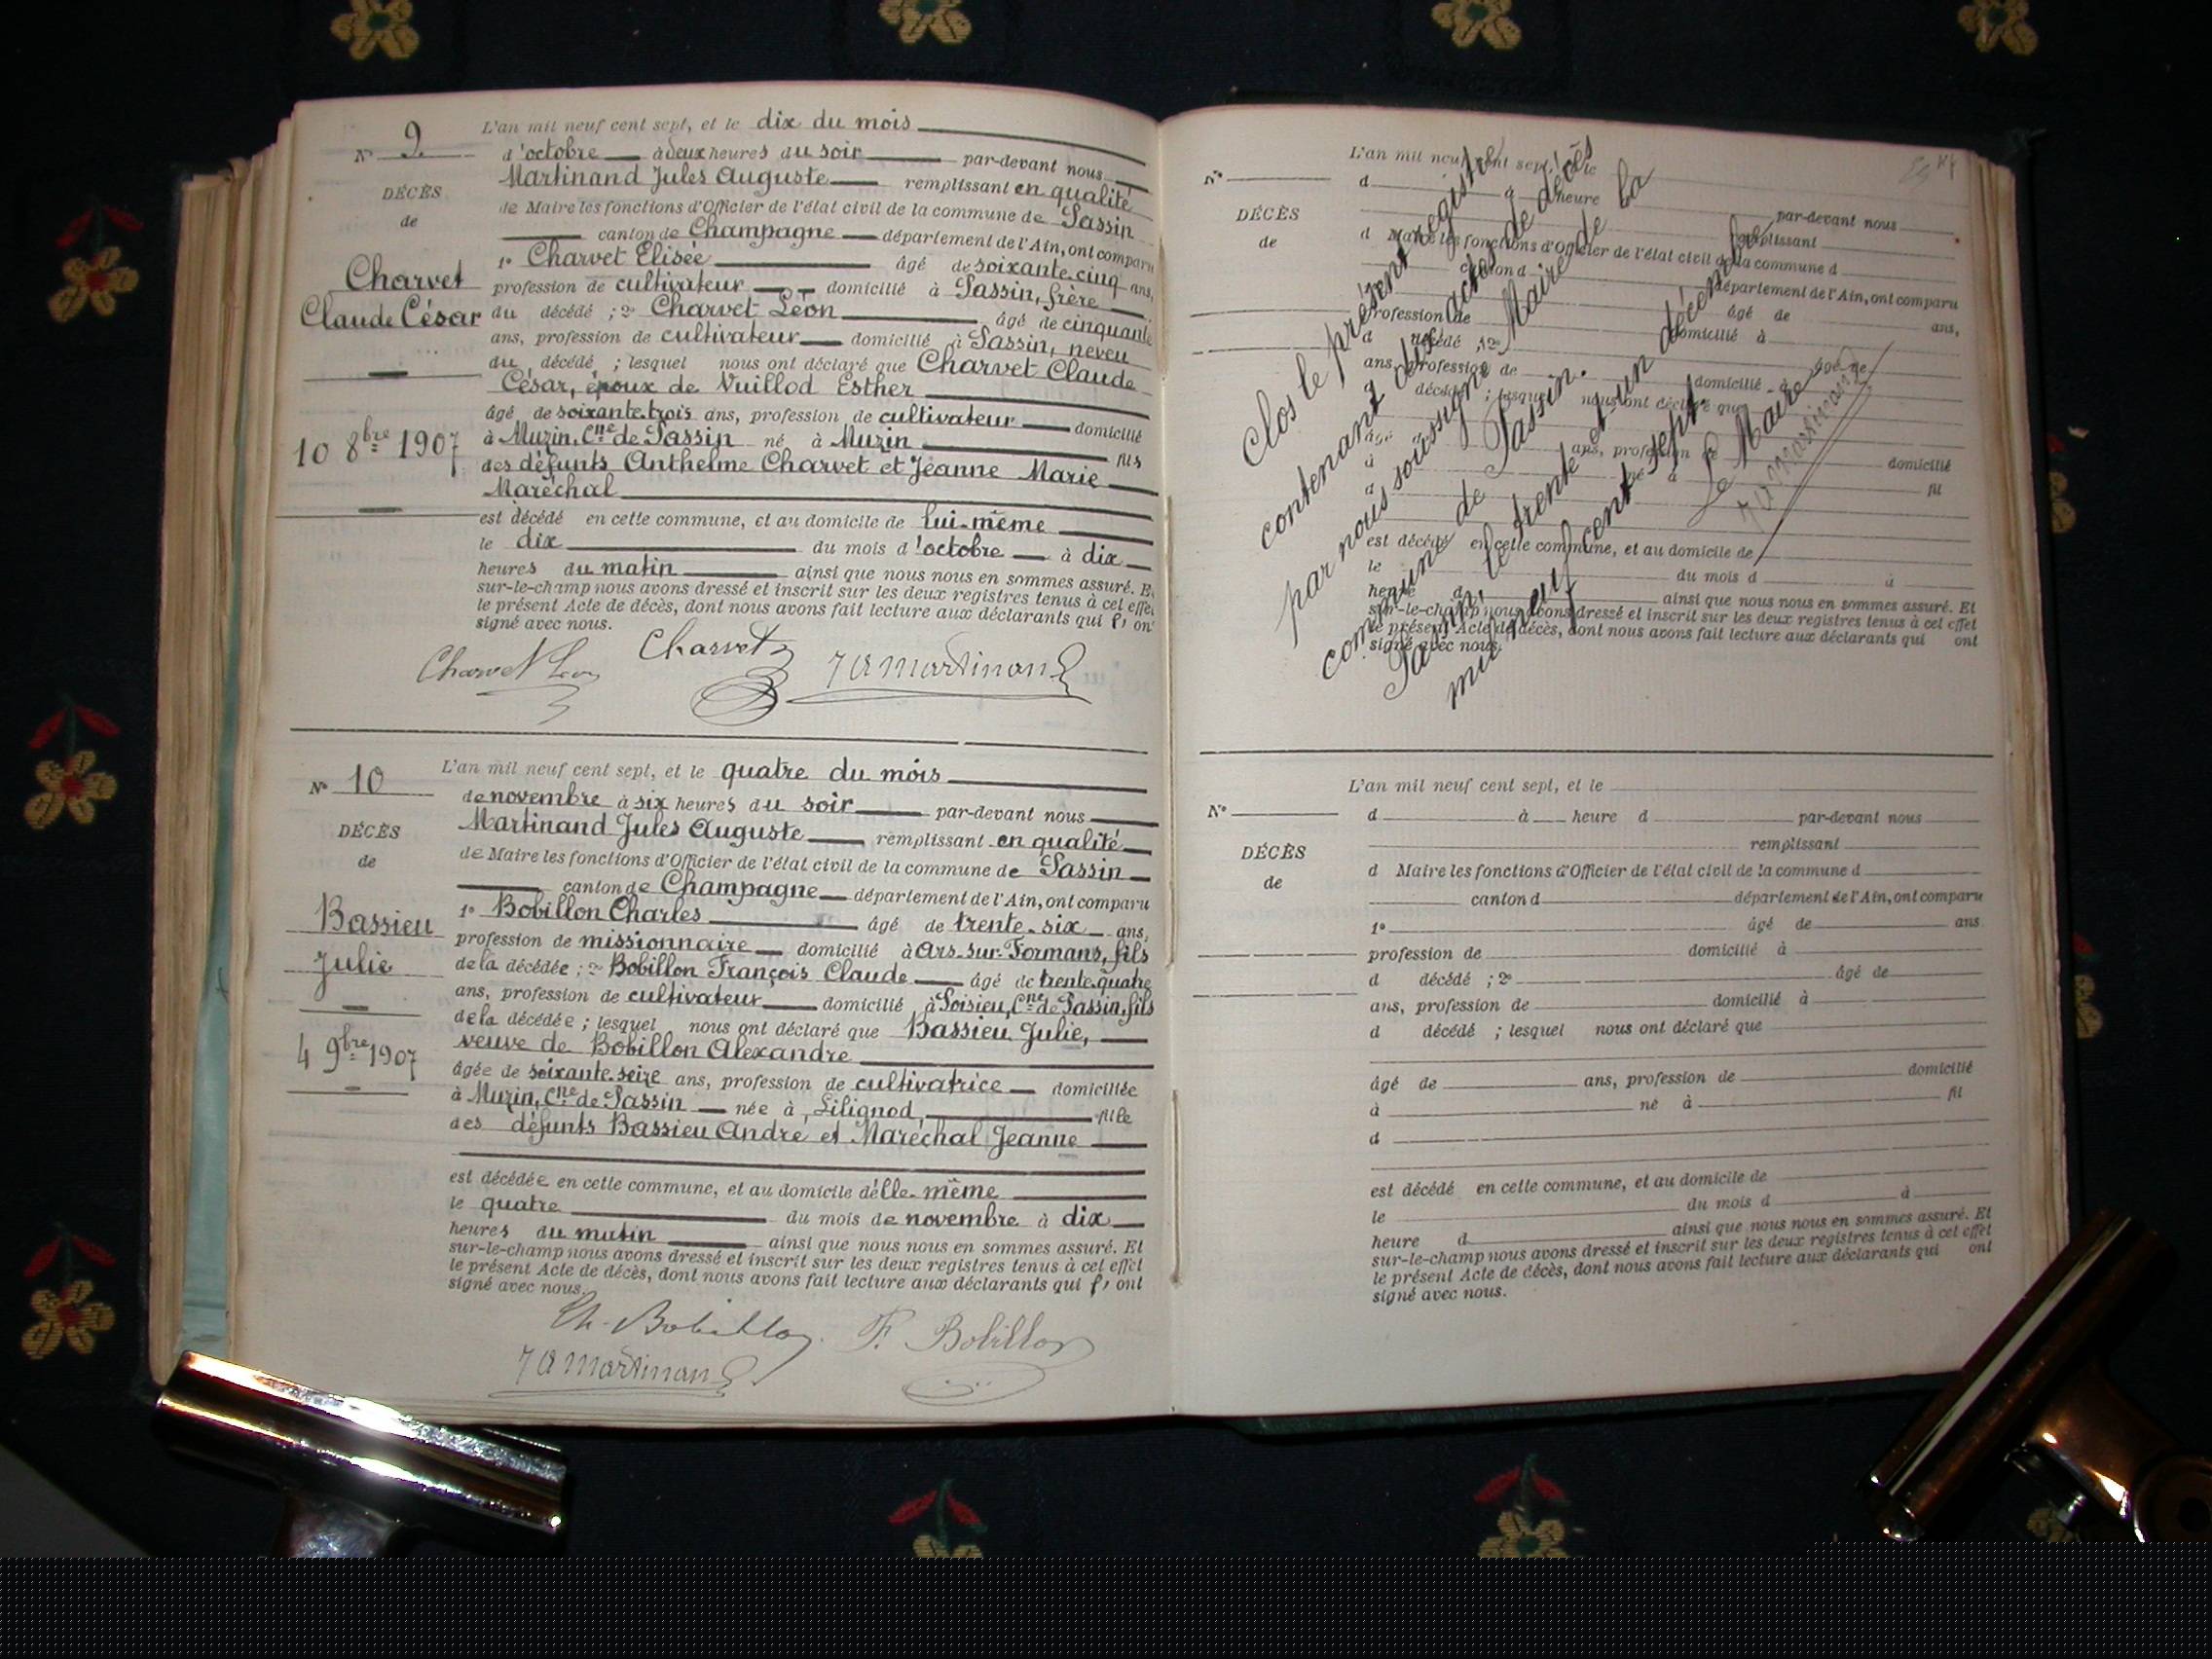 L'an mil neuf cent sept, et le dix du mois
N° 9 d'octobre à deux heures du soir par-devant nous
Martinand Jules Auguste remplissant en qualité
DÉCÈS de Maire les fonctions d'Officier de l'état civil de la commune de Passin
de canton de Champagne département de l'Ain, ont comparu
1° Charvet Elisée âgé de soixante-cinq ans,
Charvet profession de cultivateur domicilié à Passin, frère
Claude César du décédé ; 2° Charvet Léon âgé de cinquante
ans, profession de cultivateur domicilié à Passin, neveu
du décédé ; lesquel nous ont déclaré que Charvet Claude
César, époux de Vuillod Esther
âgé de soixante-trois ans, profession de cultivateur domicilié
10 8bre 1907 à Muzin, Cne de Passin né à Muzin fils
des défunts Anthelme Charvet et Jeanne Marie
Maréchal
est décédé en cette commune, et au domicile de lui-même
le dix du mois d'octobre à dix
heures du matin ainsi que nous nous en sommes assuré. E
sur-le-champ nous avons dressé et inscrit sur les deux registres tenus à cet effet
le présent Acte de décès, dont nous avons fait lecture aux déclarants qui l'ont
signé avec nous.
Charvet Léon Charvet JAMartinand
L'an mil neuf cent sept, et le quatre du mois
N° 10 de novembre à six heures du soir par-devant nous
Martinand Jules Auguste remplissant en qualité
DÉCÈS de Maire les fonctions d'Officier de l'état civil de la commune de Passin
de canton de Champagne département de l'Ain, ont comparu
Bassieu 1° Bobillon Charles âgé de trente-six ans,
profession de missionnaire domicilié à Ars-sur-Formans, fils
Julie de la décédée ; 2° Bobillon François Claude âgé de trente-quatre
ans, profession de cultivateur domicilié à Poisieu, Cne de Passin, fils
de la décédée ; lesquel nous ont déclaré que Bassieu Julie,
4 9bre 1907 veuve de Bobillon Alexandre
âgée de soixante-seize ans, profession de cultivatrice domiciliée
à Muzin, Cne de Passin née à Lilignod, fille
des défunts Bassieu André et Maréchal Jeanne
est décédée en cette commune, et au domicile d'elle-même
le quatre du mois de novembre à dix
heures du matin ainsi que nous nous en sommes assuré. Et
sur-le-champ nous avons dressé et inscrit sur les deux registres tenus à cet effet
le présent Acte de décès, dont nous avons fait lecture aux déclarants qui l'ont
signé avec nous.
Ch. Bobillon F. Bobillon
JAMartinand
Clos le présent registre
contenant dix actes de décès
par nous soussigné Maire de la
commune de Passin.
Passin, le trente et un décembre
mil neuf cent sept.
Le Maire
JAMartinand
L'an mil neuf cent sept, et le
N° d à heure d par-devant nous
remplissant
DÉCÈS d Maire les fonctions d'Officier de l'état civil de la commune d
de canton d département de l'Ain, ont comparu
profession de domicilié à âgé de ans,
d décédé ; 2° âgé de
ans, profession de domicilié à
d décédé ; lesquel nous ont déclaré que
âgé de ans, profession de domicilié
à né à fil
d
est décédé en cette commune, et au domicile de
le du mois d à
heure d ainsi que nous nous en sommes assuré. Et
sur-le-champ nous avons dressé et inscrit sur les deux registres tenus à cet effet
le présent Acte de décès, dont nous avons fait lecture aux déclarants qui ont
signé avec nous.
L'an mil neuf cent sept, et le
N° d à heure d par-devant nous
remplissant
DÉCÈS d Maire les fonctions d'Officier de l'état civil de la commune d
de canton d département de l'Ain, ont comparu
1° âgé de ans
profession de domicilié à
d décédé ; 2° âgé de
ans, profession de domicilié à
d décédé ; lesquel nous ont déclaré que
âgé de ans, profession de domicilié
à né à fil
d
est décédé en cette commune, et au domicile de
le du mois d à
heure d ainsi que nous nous en sommes assuré. Et
sur-le-champ nous avons dressé et inscrit sur les deux registres tenus à cet effet
le présent Acte de décès, dont nous avons fait lecture aux déclarants qui ont
signé avec nous.